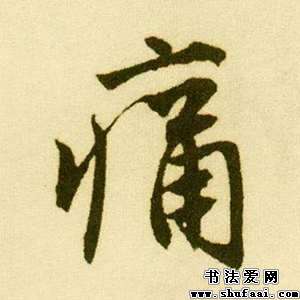 痛
书法爱网
www.shufaai.com